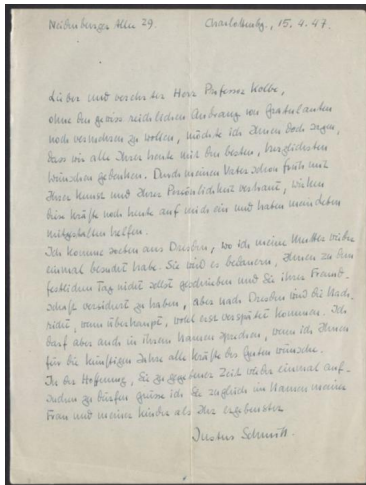 Nürnberger Allee 29. Charlottenbg., 15.4.47.
Lieber und verehrter Herr Professor Kolbe,
ohne den gewiss reichlichen Andrang von Gratulanten
noch vermehren zu wollen, möchte ich Ihnen doch sagen,
dass wir alle Ihrer heute mit den besten, herzlichsten
Wünschen gedenken. Durch meinen Vater schon früh mit
Ihrer Kunst und Ihrer Persönlichkeit vertraut, wirken
Kräfte noch heute auf mich ein und haben mein Leben
mitgestalten helfen.
Ich komme soeben aus Dresden, wo ich meine Mutter wieder
einmal besucht habe. Sie wird es bedauern, Ihnen zu dem
festlichen Tag nicht selbst geschrieben und Sie ihrer Freund-
schaft versichert zu haben, aber nach Dresden wird die Nach-
richt, wenn überhaupt, wohl erst verspätet kommen. Ich
darf aber auch in ihrem Namen sprechen, wenn ich Ihnen
für die künftigen Jahre alle Kräfte des Guten wünsche.
In der Hoffnung, Sie zu gegebener Zeit wieder einmal auf-
suchen zu dürfen grüsse ich Sie zugleich im Namen meiner
Frau und meiner Kinder als Ihr ergebenster
Justus Schmitt.